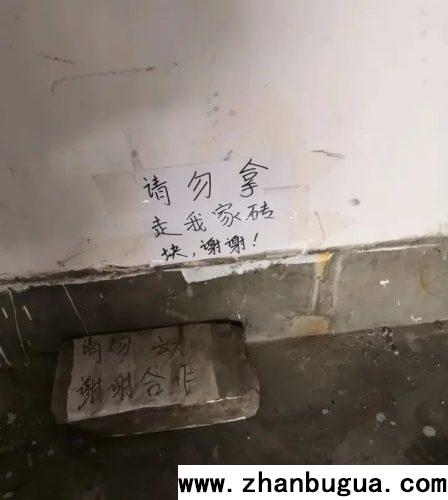 请勿拿
走我家砖
块,谢谢!
请勿动
谢谢合作
www.zhanbugua.com